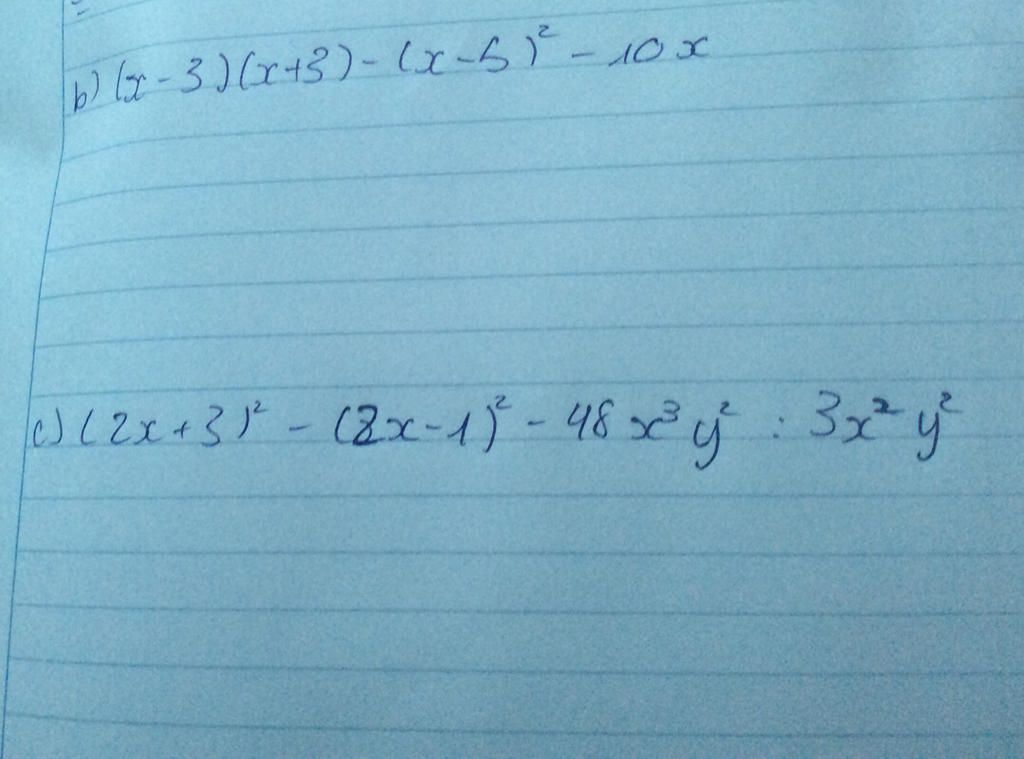 b) (x-3)(x+3) - (x-5)² - 10x
c) (2x+3)² - (2x-1)² - 48x³y² : 3x²y²